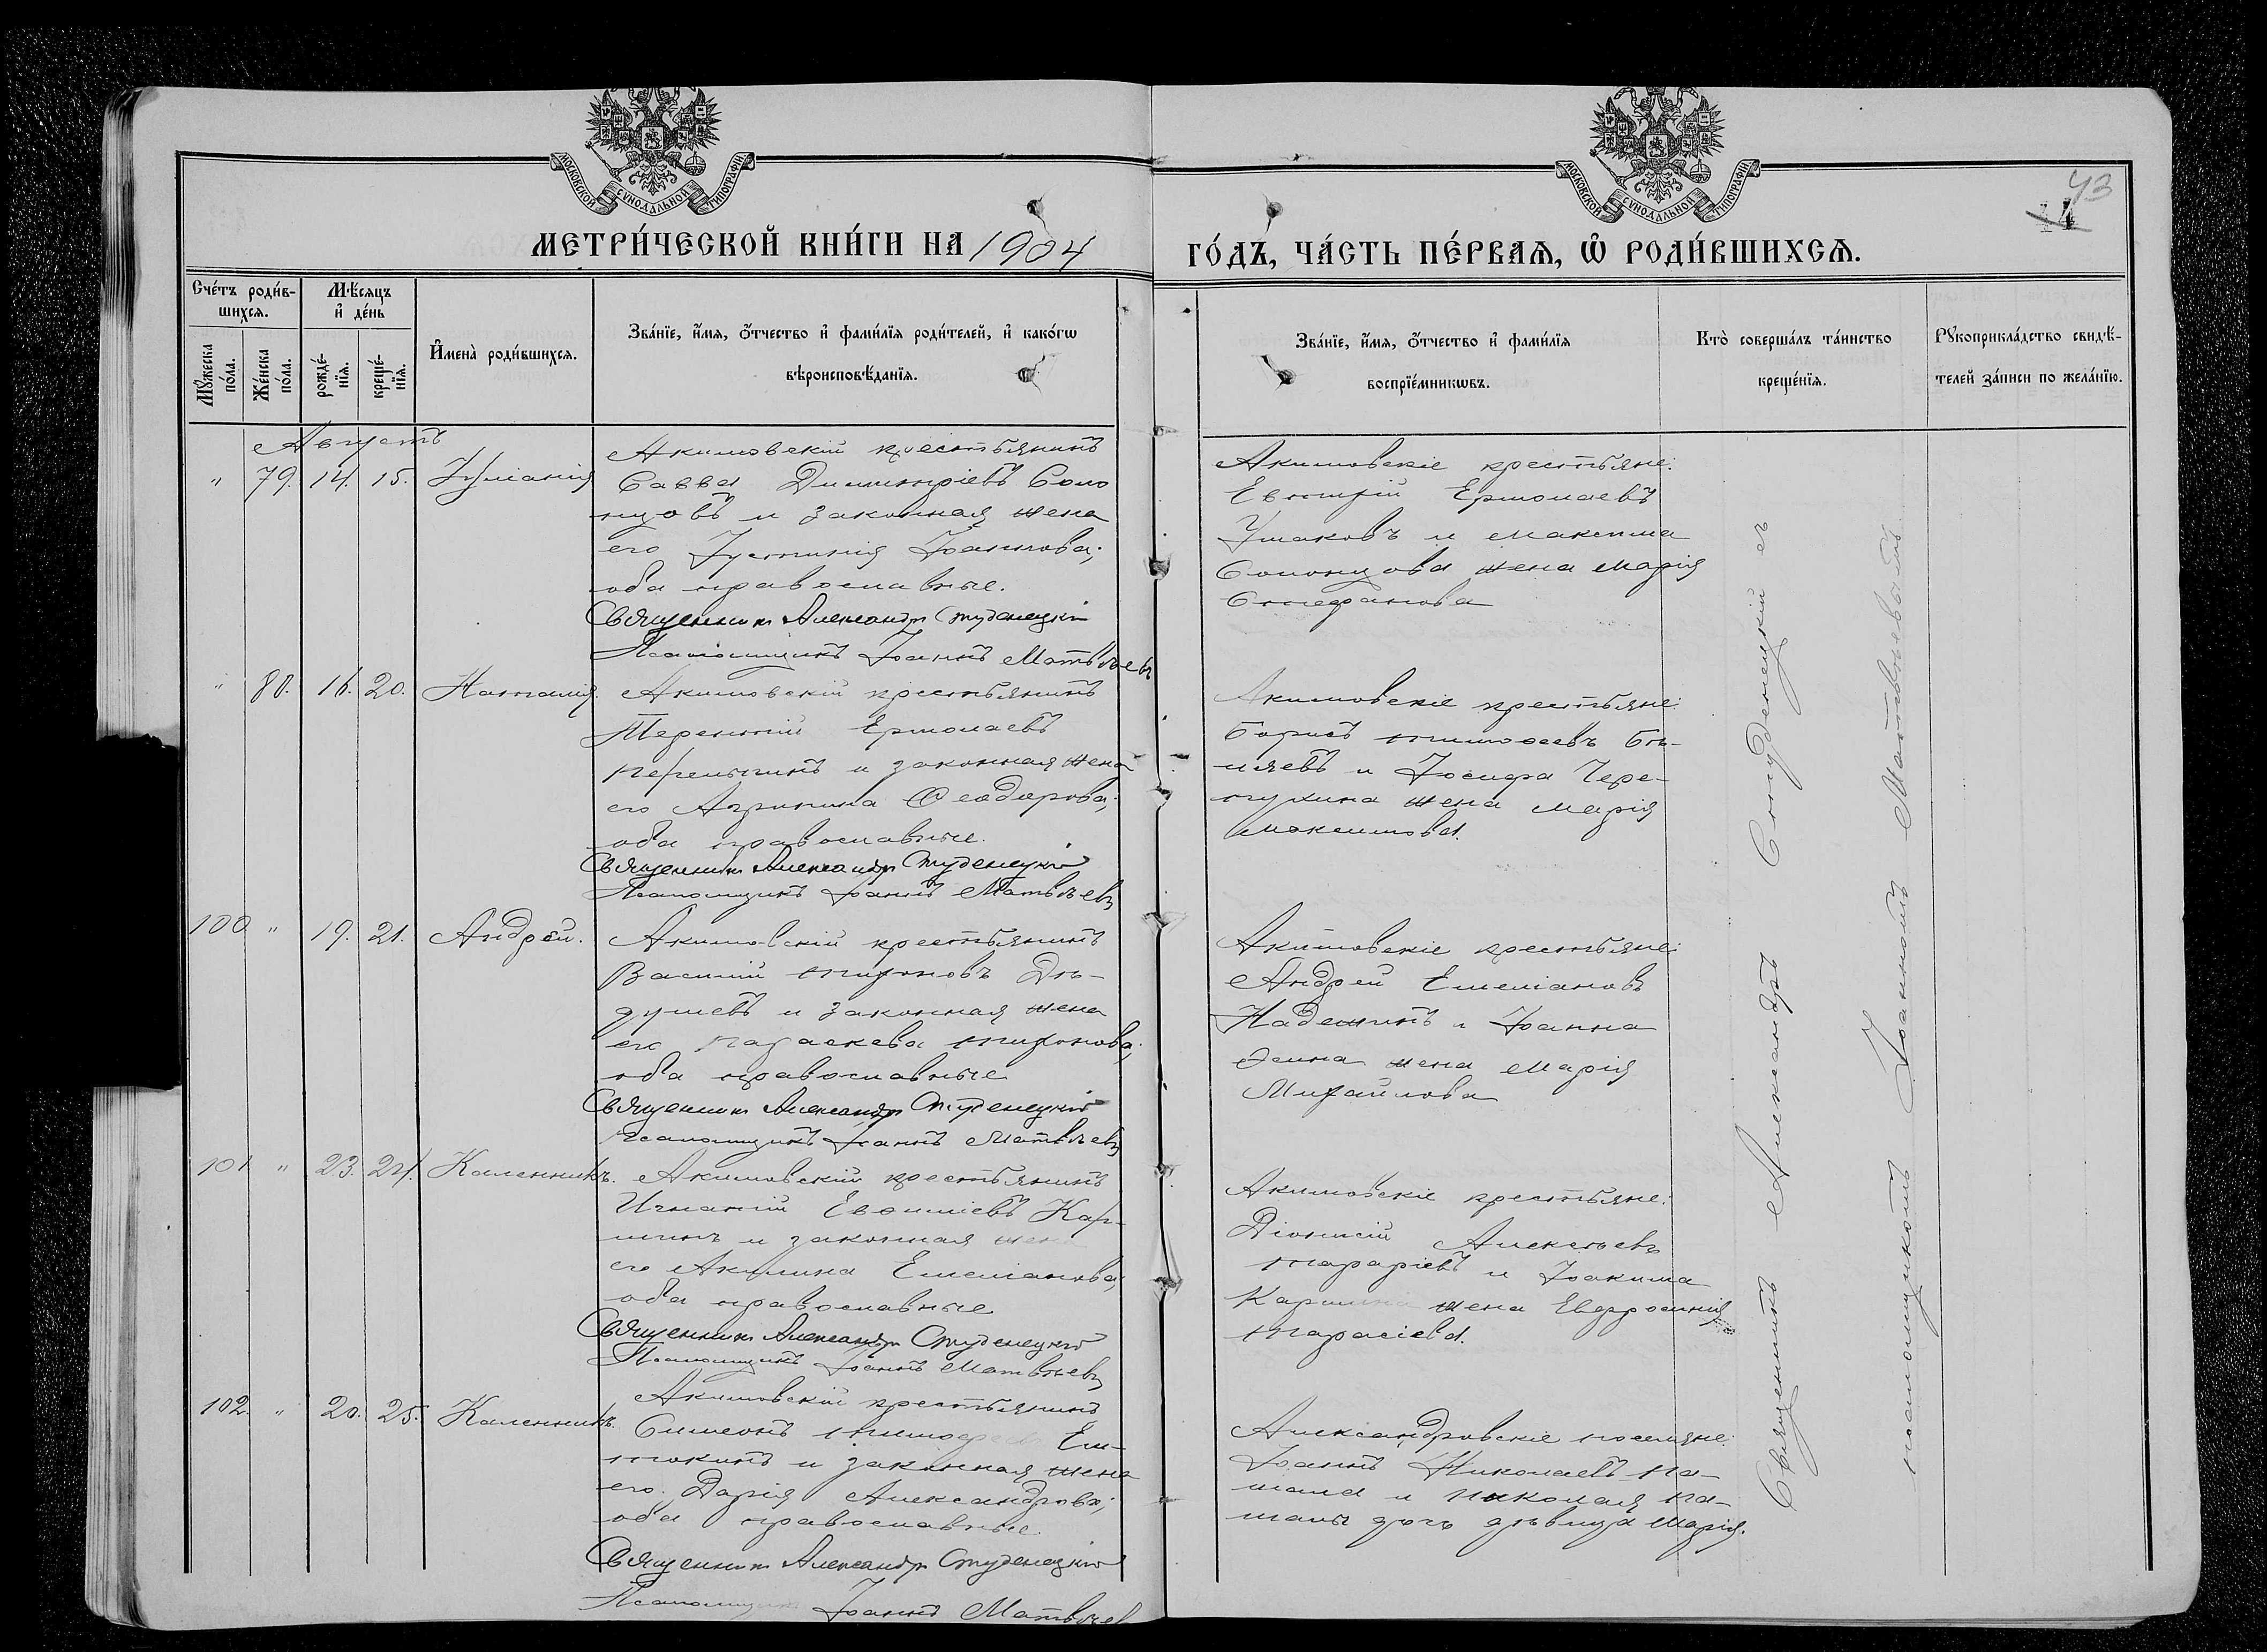 МОСКОВСКОЙ СѴНОДАЛЬНОЙ ТИПОГРАФІИ
МОСКОВСКОЙ СѴНОДАЛЬНОЙ ТИПОГРАФІИ
43
МЕТРИ́ЧЕСКОЙ КНИ́ГИ НА 1904
ГО́ДЪ, ЧА́СТЬ ПЕ́РВАѦ, Ѡ҆ РОДИ́ВШИХСѦ.
Сче́тъ роди́в-
шихсѧ.
Мꙋ́жеска по́ла.
Же́нска по́ла.
Мѣ́сѧцъ
и҆ де́нь
рожде́-нїѧ.
креще́-нїѧ.
И҆мена̀ роди́вшихсѧ.
Зва́нїе, и҆́мѧ, ѻ҆́тчество и҆ фами́лїѧ роди́телей, и҆ како́гѡ
вѣроисповѣ́данїѧ.
Зва́нїе, и҆́мѧ, ѻ҆́тчество и҆ фами́лїѧ
воспрїе́мникѡвъ.
Кто̀ соверша́лъ та́инство
креще́нїѧ.
Рꙋкоприкла́дство свидѣ́-
телей за́писи по жела́нїю.
Августъ
" 79. 14. 15. Іуліанія
Акимовскій крестьянинъ
Савва Димитріевъ Соло
нцовъ и законная жена
его Іустинія Іоаннова;
оба православные.
Священник Александр Студенецкій
Псаломщикъ Іоаннъ Матвѣевъ
Акимовскіе крестьяне:
Евтихій Ермолаевъ
Ушаковъ и Максима
Солонцова жена Марія
Стефанова
" 80. 16. 20. Наталія.
Акимовскій крестьянинъ
Терентій Ермолаевъ
и законная жена
его Агрипина Ѳеодорова;
оба православные.
Священник Александр Студенецкій
Псаломщикъ Іоаннъ Матвѣевъ
Акимовскіе крестьяне:
Борисъ Тимоѳеевъ Бѣ-
ляевъ и Іосифа Чере-
пухина жена Марія
Максимова.
100 " 19. 21. Андрей.
Акимовскій крестьянинъ
Василій Тихоновъ Дѣ-
душевъ и законная жена
его Параскева Тихонова;
оба православные
Священник Александр Студенецкій
Псаломщикъ Іоаннъ Матвѣевъ
Акимовскіе крестьяне:
Андрей Емеліановъ
Надежинъ и Іоанна
жена Марія
Михайлова
101 " 23. 24. Каленникъ.
Акимовскій крестьянинъ
Игнатій Евѳиміевъ Кар-
и законная жена
его Акилина Емеліанова;
оба православные
Священник Александр Студенецкій
Псаломщикъ Іоаннъ Матвѣевъ
Акимовскіе крестьяне:
Діонисій Алексѣевъ
и Іоакима
жена Евфросинія
Тарасіева.
102. " 20. 25. Каленникъ.
Акимовскій крестьянинъ
Симеонъ Тимоѳеев Ем-
и законная жена
его Дарія Александрова;
оба православные.
Священник Александр Студенецкій
Псаломщикъ Іоаннъ Матвѣев
Александровскіе поселяне:
Іоаннъ Николаевъ
и Николая
дочь дѣвица Марія.
Священникъ Александръ Студенецкій съ
псаломщикомъ Іоанномъ Матвѣевымъ